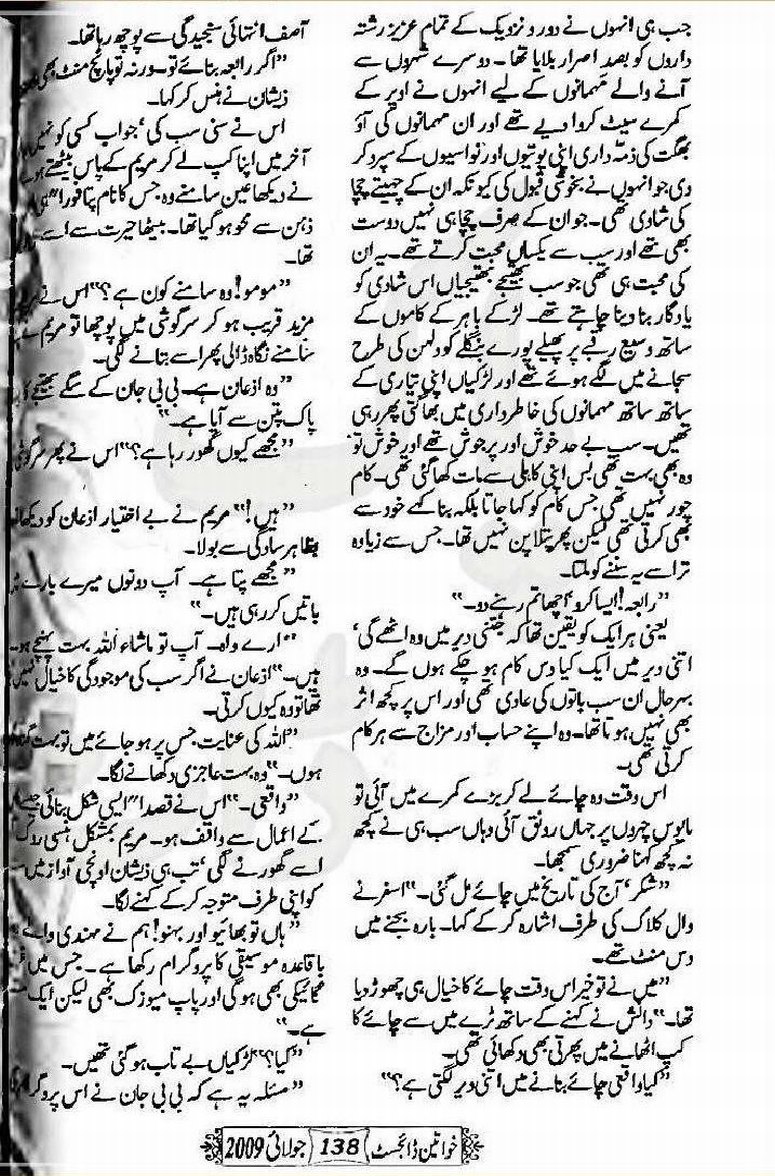 جب ہی انہوں نے دور و نزدیک کے تمام عزیز رشتہ
داروں کو بصد اصرار بلایا تھا۔ دوسرے شہروں سے
آنے والے مہمانوں کے لیے انہوں نے اوپر کے
کمرے سیٹ کروا دیے تھے اور ان مہمانوں کی آؤ
بھگت کی ذمہ داری اپنی پوتیوں اور نواسیوں کے سپرد کر
دی جو انہوں نے بخوشی قبول کی کیونکہ ان کے چہیتے چچا
کی شادی تھی۔ جو ان کے صرف چچا ہی نہیں دوست
بھی تھے اور سب سے یکساں محبت کرتے تھے۔ یہ ان
کی محبت ہی تھی جو سب بھتیجے بھتیجیاں اس شادی کو
یادگار بنا دینا چاہتے تھے۔ لڑکے باہر کے کاموں کے
ساتھ وسیع رقبے پر پھیلے پورے بنگلے کو دلہن کی طرح
سجانے میں لگے ہوئے تھے اور لڑکیاں اپنی تیاری کے
ساتھ ساتھ مہمانوں کی خاطرداری میں بھاگتی پھر رہی
تھیں۔ سب بے حد خوش اور پرجوش تھے اور خوش تو
وہ بھی بہت تھی بس اپنی کاہلی سے مات کھا گئی تھی۔ کام
چور نہیں تھی جس کام کو کہا جاتا بلکہ بنا کہے خود سے
بھی کرتی تھی لیکن پھرتیلا پن نہیں تھا۔ جس سے زیادہ
تر اسے یہ سننے کو ملتا۔
”رابعہ! ایسا کرو‘ اچھا تم رہنے دو۔“
یعنی ہر ایک کو یقین تھا کہ جتنی دیر میں وہ اٹھے گی‘
اتنی دیر میں ایک کیا دس کام ہو چکے ہوں گے۔ وہ
بہرحال ان سب باتوں کی عادی تھی اور اس پر کچھ اثر
بھی نہیں ہوتا تھا۔ وہ اپنے حساب اور مزاج سے ہر کام
کرتی تھی۔
اس وقت وہ چائے لے کر بڑے کمرے میں آئی تو
مایوس چہروں پر جہاں رونق آئی وہاں سب ہی نے کچھ
نہ کچھ کہنا ضروری سمجھا۔
”شکر‘ آج کی تاریخ میں چائے مل گئی۔“ اسفر نے
وال کلاک کی طرف اشارہ کر کے کہا۔ بارہ بجنے میں
دس منٹ تھے۔
”میں نے تو خیر اس وقت چائے کا خیال ہی چھوڑ دیا
تھا۔“ دانش نے کہنے کے ساتھ ٹرے میں سے چائے کا
کپ اٹھانے میں پھرتی بھی دکھائی تھی۔
”کیا واقعی چائے بنانے میں اتنی دیر لگتی ہے؟“
آصف انتہائی سنجیدگی سے پوچھ رہا تھا۔
”اگر رابعہ بنائے تو۔ ورنہ تو پانچ منٹ
ذیشان نے ہنس کر کہا۔
اس نے سنی سب کی‘ جواب کسی کو نہیں
آخر میں اپنا کپ لے کر مریم کے پاس بیٹھتے
نے دیکھا عین سامنے وہ جس کا نام پتا فوراً ہی
ذہن سے محو ہو گیا تھا۔ بیٹھا حیرت سے اسے
تھا۔
”مومو! وہ سامنے کون ہے؟“ اس نے
مزید قریب ہو کر سرگوشی میں پوچھا تو مریم
سامنے نگاہ ڈالی پھر اسے بتانے لگی۔
”وہ اذعان ہے۔ بی بی جان کے سگے بھتیجے
پاک پتن سے آیا ہے۔“
”مجھے کیوں گھور رہا ہے؟“ اس نے پھر
”ہیں!“ مریم نے بے اختیار اذعان کو دیکھا
بظاہر سادگی سے بولا۔
”مجھے پتا ہے۔ آپ دونوں میرے بارے
باتیں کر رہی ہیں۔“
”ارے واہ۔ آپ تو ماشاء اللہ بہت پہنچے
ہیں۔“ اذعان نے اگر سب کی موجودگی کا خیال نہیں
تھا تو وہ کیوں کرتی۔
”اللہ کی عنایت جس پر ہو جائے میں تو بہت
ہوں۔“ وہ بہت عاجزی دکھانے لگا۔
”واقعی۔“ اس نے قصداً ایسی شکل بنائی جیسے
کے اعمال سے واقف ہو۔ مریم بمشکل ہنسی روک
اسے گھورنے لگی‘ تب ہی ذیشان اونچی آواز میں
کو اپنی طرف متوجہ کر کے کہنے لگا۔
”ہاں تو بھائیو اور بہنو! ہم نے مہندی والے
باقاعدہ موسیقی کا پروگرام رکھا ہے۔ جس میں
گائیکی بھی ہو گی اور پاپ میوزک بھی لیکن ایک
ہے۔“
”کیا؟“ لڑکیاں بے تاب ہو گئی تھیں۔
”مسئلہ یہ ہے کہ بی بی جان نے اس
خواتین ڈائجسٹ 138 جولائی 2009